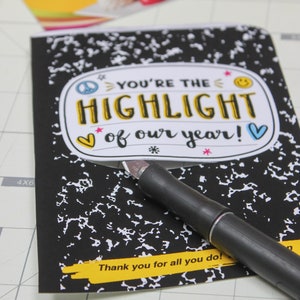 YOU'RE THE
HIGHLIGHT
of our year!
Thank you for all you do!